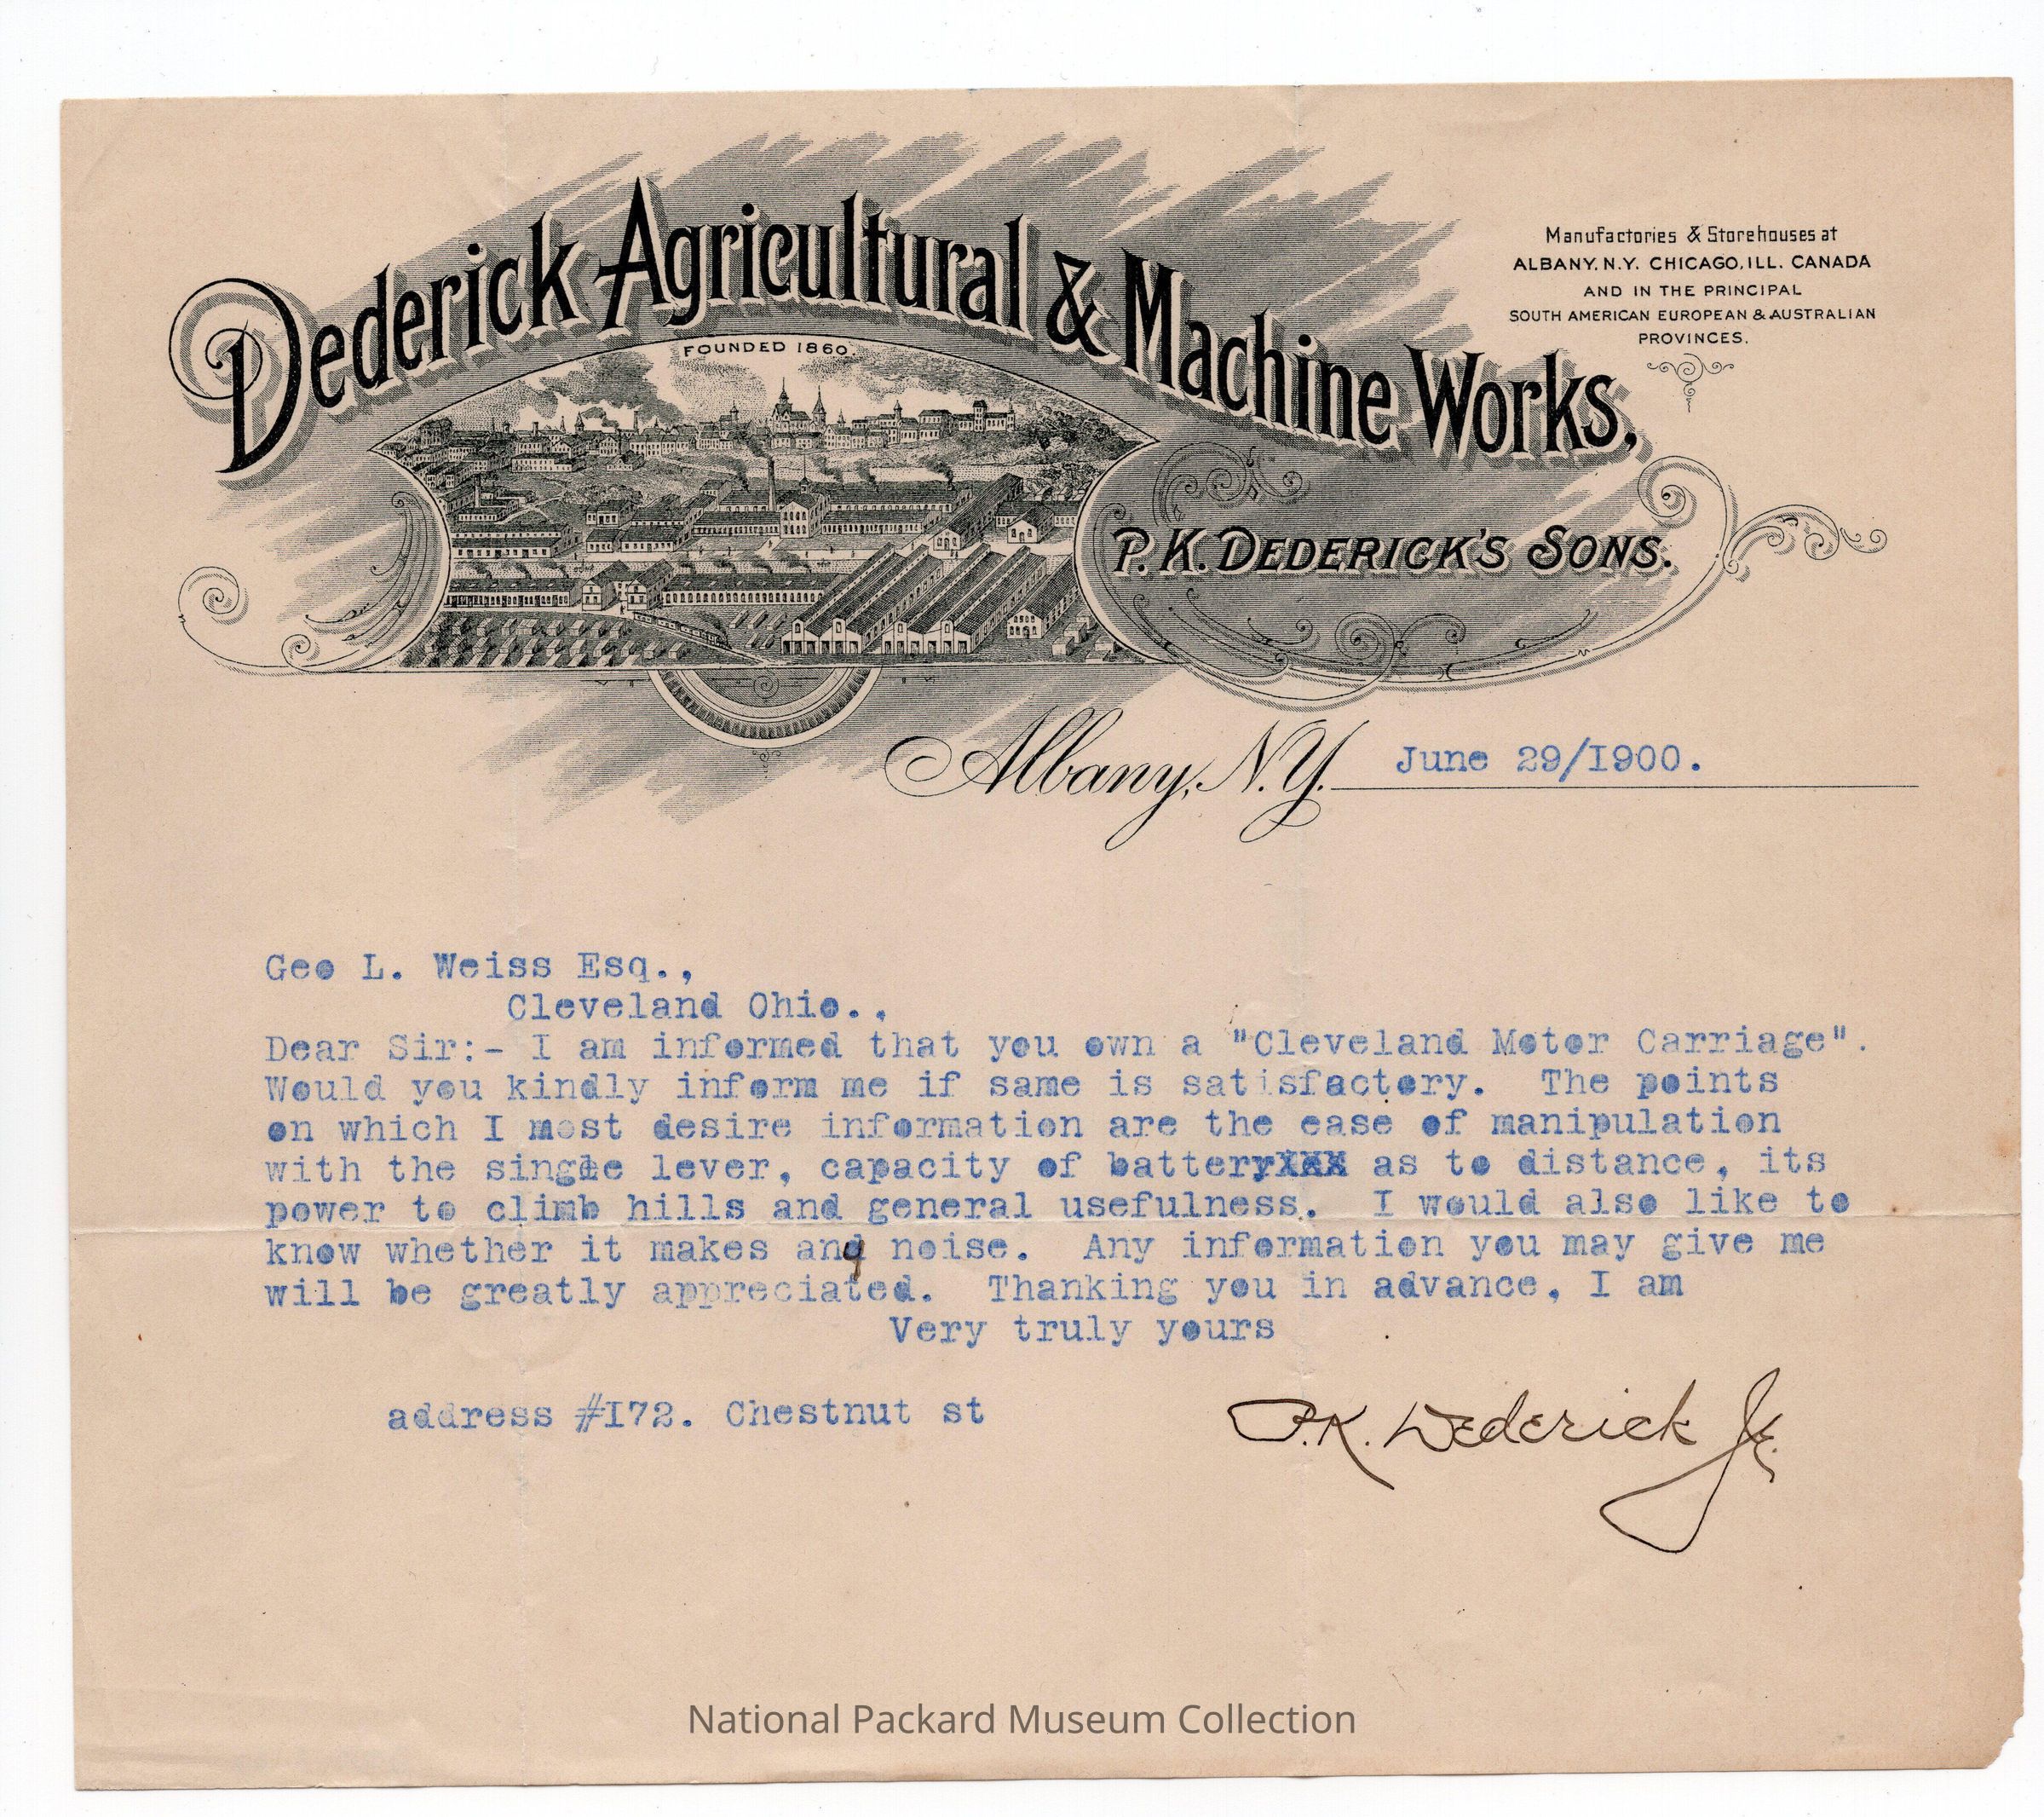 Dederick Agricultural & Machine Works,
FOUNDED 1860.
Manufactories & Storehouses at
ALBANY, N.Y. CHICAGO, ILL. CANADA
AND IN THE PRINCIPAL
SOUTH AMERICAN EUROPEAN & AUSTRALIAN
PROVINCES.
P. K. DEDERICK'S SONS.
Albany, N.Y. June 29/I900.
Geo L. Weiss Esq.,
Cleveland Ohio..
Dear Sir:- I am informed that you own a "Cleveland Motor Carriage".
Would you kindly inform me if same is satisfactory. The points
on which I most desire information are the ease of manipulation
with the single lever, capacity of batteryXXX as to distance, its
power to climb hills and general usefulness. I would also like to
know whether it makes any noise. Any information you may give me
will be greatly appreciated. Thanking you in advance, I am
Very truly yours
address #I72. Chestnut st
P.K. Dederick Jr.
National Packard Museum Collection